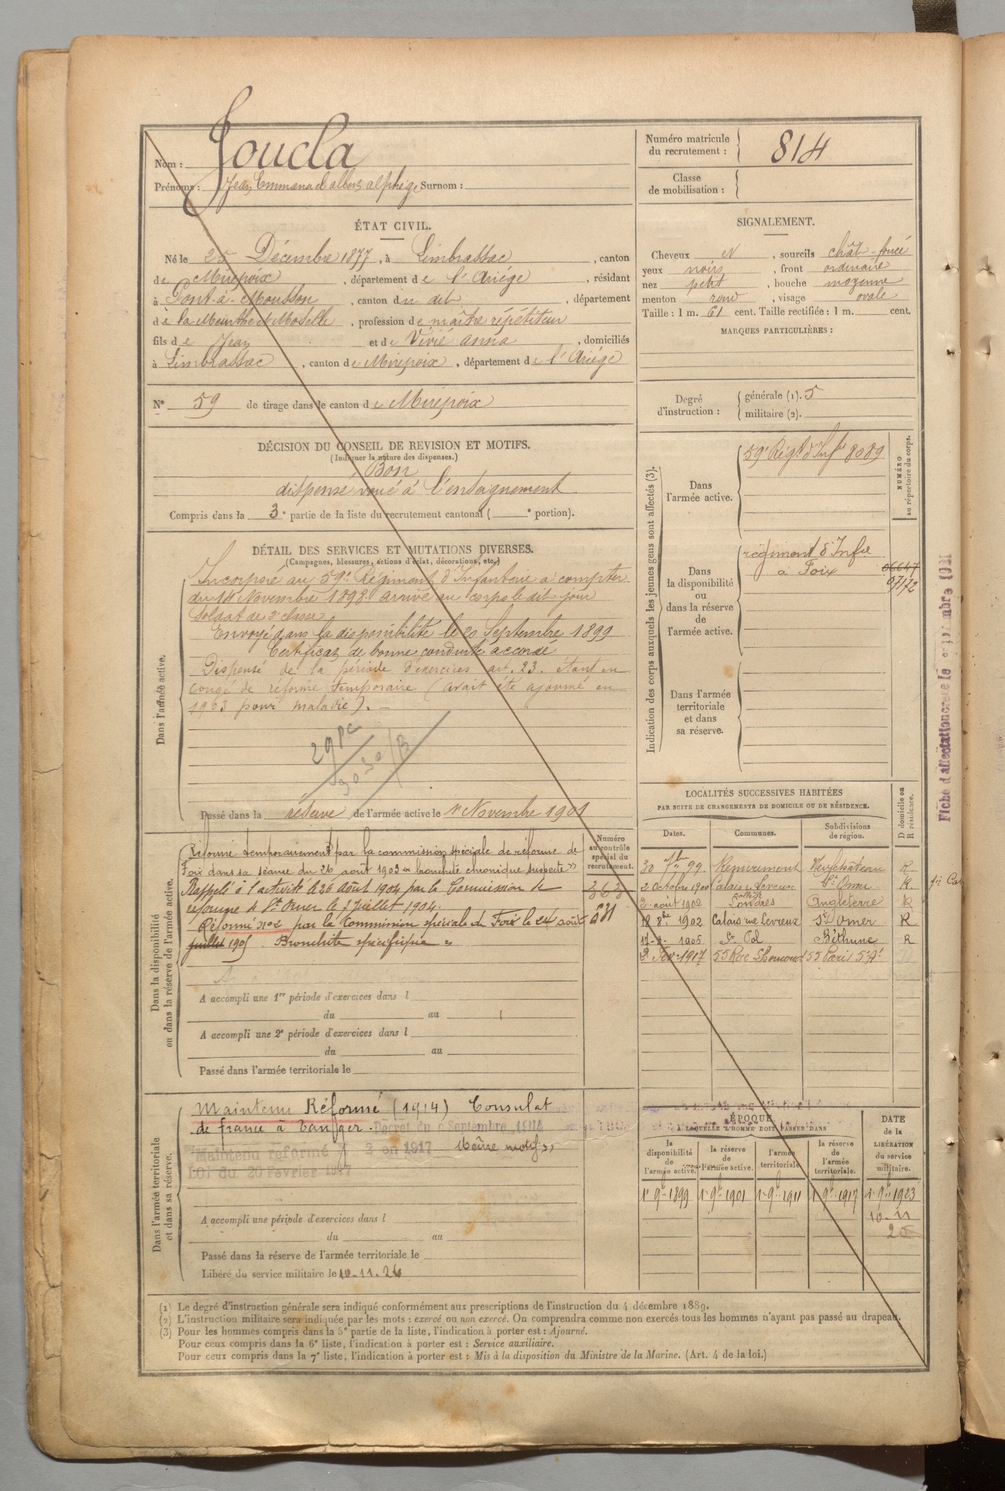 Nom : Joucla
Prénoms : Jean Emmanuel albert alphège Surnom :
Numéro matricule du recrutement : 814
Classe de mobilisation :
ÉTAT CIVIL.
Né le 25 Décembre 1877, à Limbrassac, canton
de Mirepoix, département de l'Ariége, résidant
à Pont-à-Mousson, canton du dit, département
de la Meurthe et Moselle, profession de maître répétiteur
fils de Jean et de Vivié anna, domiciliés
à Limbrassac, canton de Mirepoix, département de l'Ariége
N° 59 de tirage dans le canton de Mirepoix
SIGNALEMENT.
Cheveux N, sourcils chât-foncé
yeux noirs, front ordinaire
nez petit, bouche moyenne
menton rond, visage ovale
Taille : 1 m. 61 cent. Taille rectifiée : 1 m. cent.
MARQUES PARTICULIÈRES :
Degré d'instruction : générale (1). 5
militaire (2).
DÉCISION DU CONSEIL DE REVISION ET MOTIFS.
(Indiquer la nature des dispenses.)
Bon
dispensé voué à l'enseignement
Compris dans la 3e partie de la liste du recrutement cantonal ( e portion).
DÉTAIL DES SERVICES ET MUTATIONS DIVERSES.
(Campagnes, blessures, actions d'éclat, décorations, etc.)
Dans l'armée active.
Incorporé au 59e Régiment d'Infanterie à compter
du 14 Novembre 1898 arrivé au corps le dit jour
soldat de 2e classe
Envoyé dans la disponibilité le 20 Septembre 1899
Certificat de bonne conduite accordé
Dispensé de la période d'exercices art. 23. étant en
congé de réforme temporaire (avait été ajourné en
1903 pour maladie).
Passé dans la réserve de l'armée active le 1er Novembre 1901
Indication des corps auxquels les jeunes gens sont affectés (3).
NUMÉRO au répertoire du corps.
Dans l'armée active.
59e Régt d'Infie 8089
Dans la disponibilité ou dans la réserve de l'armée active.
régiment d'Infie
à Foix
Dans l'armée territoriale et dans sa réserve.
LOCALITÉS SUCCESSIVES HABITÉES
PAR SUITE DE CHANGEMENTS DE DOMICILE OU DE RÉSIDENCE.
Dates. Communes. Subdivisions de région. D domicile ou R résidence.
30 7bre 99 Remiremont Neufchâteau R
2 Octobre 1900 Calais St Omer R.
2 août 1902 Londres Angleterre R
1902 Calais St Omer R
1905 St Pol Béthune R
1917 Paris
Dans la disponibilité ou dans la réserve de l'armée active.
Numéro au contrôle spécial du recrutement.
Réformé temporairement par la commission spéciale de réforme de
Foix dans sa séance du 26 août 1902 « bronchite chronique suspecte »
Rappelé à l'activité le 26 Août 1904 par la Commission de
réforme de St Omer le 2 Juillet 1904.
Réformé n°2 par la Commission spéciale de Foix le 24 août
juillet 1905 Bronchite spécifique
A accompli une 1re période d'exercices dans l
du au
A accompli une 2e période d'exercices dans l
du au
Passé dans l'armée territoriale le
Dans l'armée territoriale et dans sa réserve.
Maintenu Réformé (1914) Consulat
de france à Tanger. Décret du 9 Septembre 1914
Maintenu reformé 2 en 1917 même motif
LOI du 20 Fevrier 1917
A accompli une période d'exercices dans l
du au
Passé dans la réserve de l'armée territoriale le
Libéré du service militaire le 10.11.26
ÉPOQUE
A LAQUELLE L'HOMME DOIT PASSER DANS
la disponibilité de l'armée active. la réserve de l'armée active. l'armée territoriale. la réserve de l'armée territoriale. DATE de la LIBÉRATION du service militaire.
1er 9bre 1899 1er 9bre 1901 1er 9bre 1911 1er 9bre 1917 1er 9bre 1923
10-11
26
(1) Le degré d'instruction générale sera indiqué conformément aux prescriptions de l'instruction du 4 décembre 1889.
(2) L'instruction militaire sera indiquée par les mots : exercé ou non exercé. On comprendra comme non exercés tous les hommes n'ayant pas passé au drapeau.
(3) Pour les hommes compris dans la 5e partie de la liste, l'indication à porter est : Ajourné.
Pour ceux compris dans la 6e liste, l'indication à porter est : Service auxiliaire.
Pour ceux compris dans la 7e liste, l'indication à porter est : Mis à la disposition du Ministre de la Marine. (Art. 4 de la loi.)